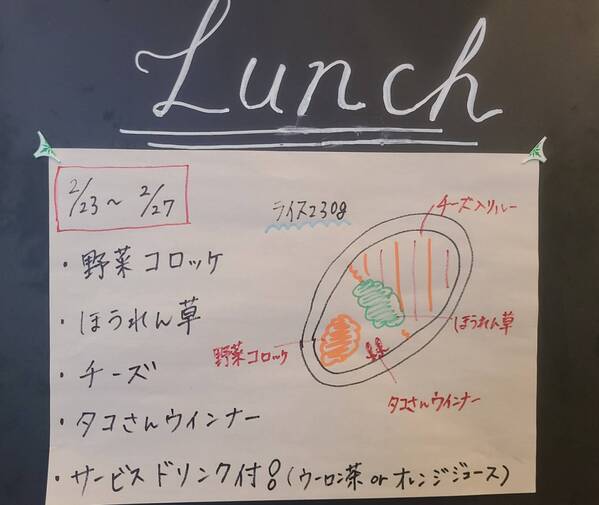 Lunch
2/23～2/27
ライス230g
チーズ入りルー
・野菜コロッケ
・ほうれん草
ほうれん草
野菜コロッケ
・チーズ
タコさんウインナー
・タコさんウインナー
・サービスドリンク付!(ウーロン茶 or オレンジジュース)